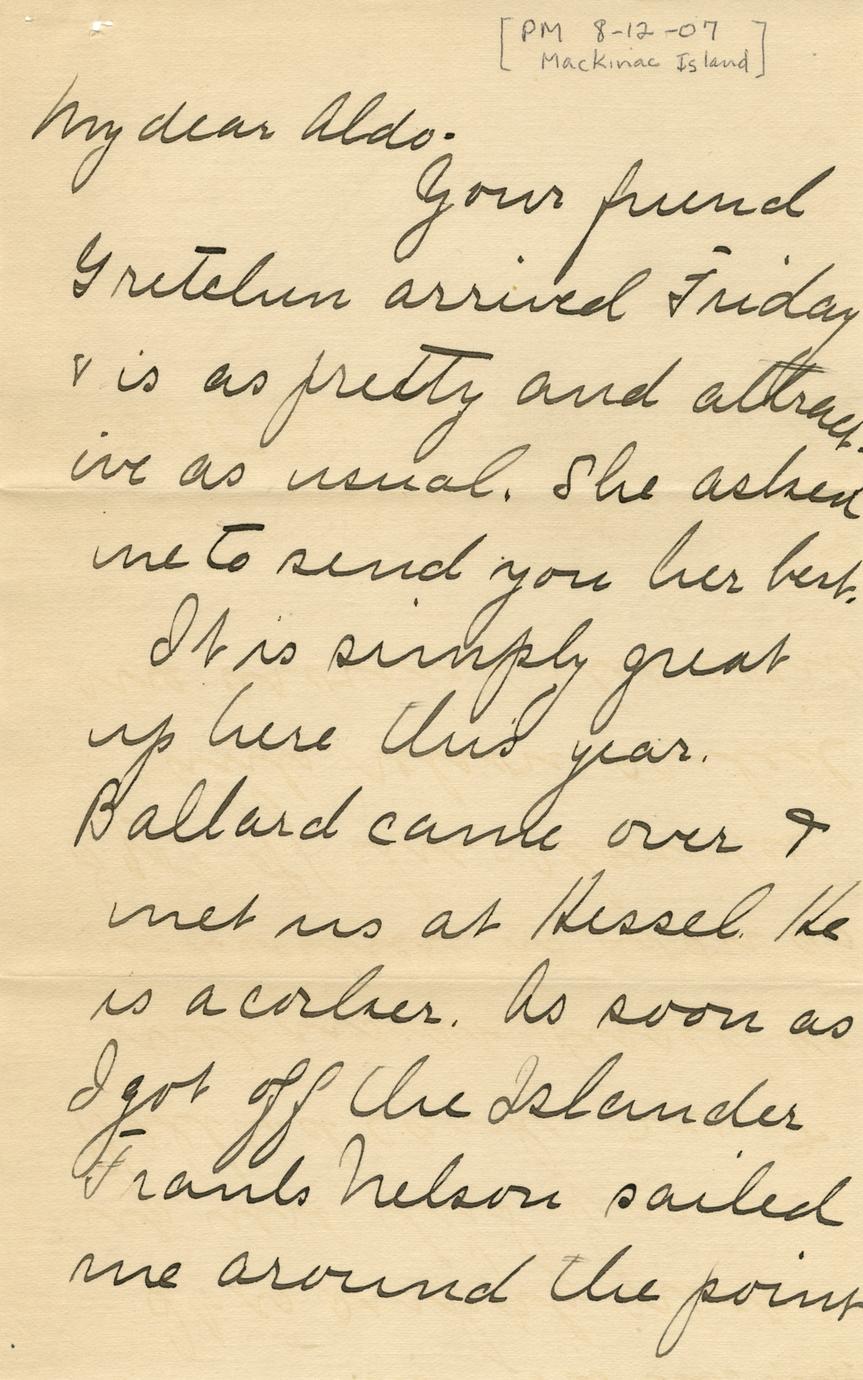 [PM 8-12-07
Mackinac Island]
My dear Aldo.
Your friend
Gretchen arrived Friday
& is as pretty and attract-
ive as usual. She asked
me to send you her best.
It is simply great
up here this year.
Ballard came over &
met us at Hessel. He
is a corker. As soon as
I got off the Islander
Frank Nelson sailed
me around the point